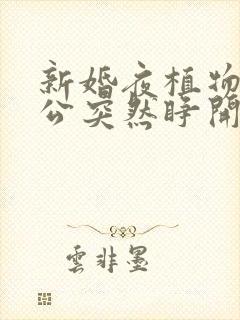 新婚夜植物
公突然睁開
雲非墨